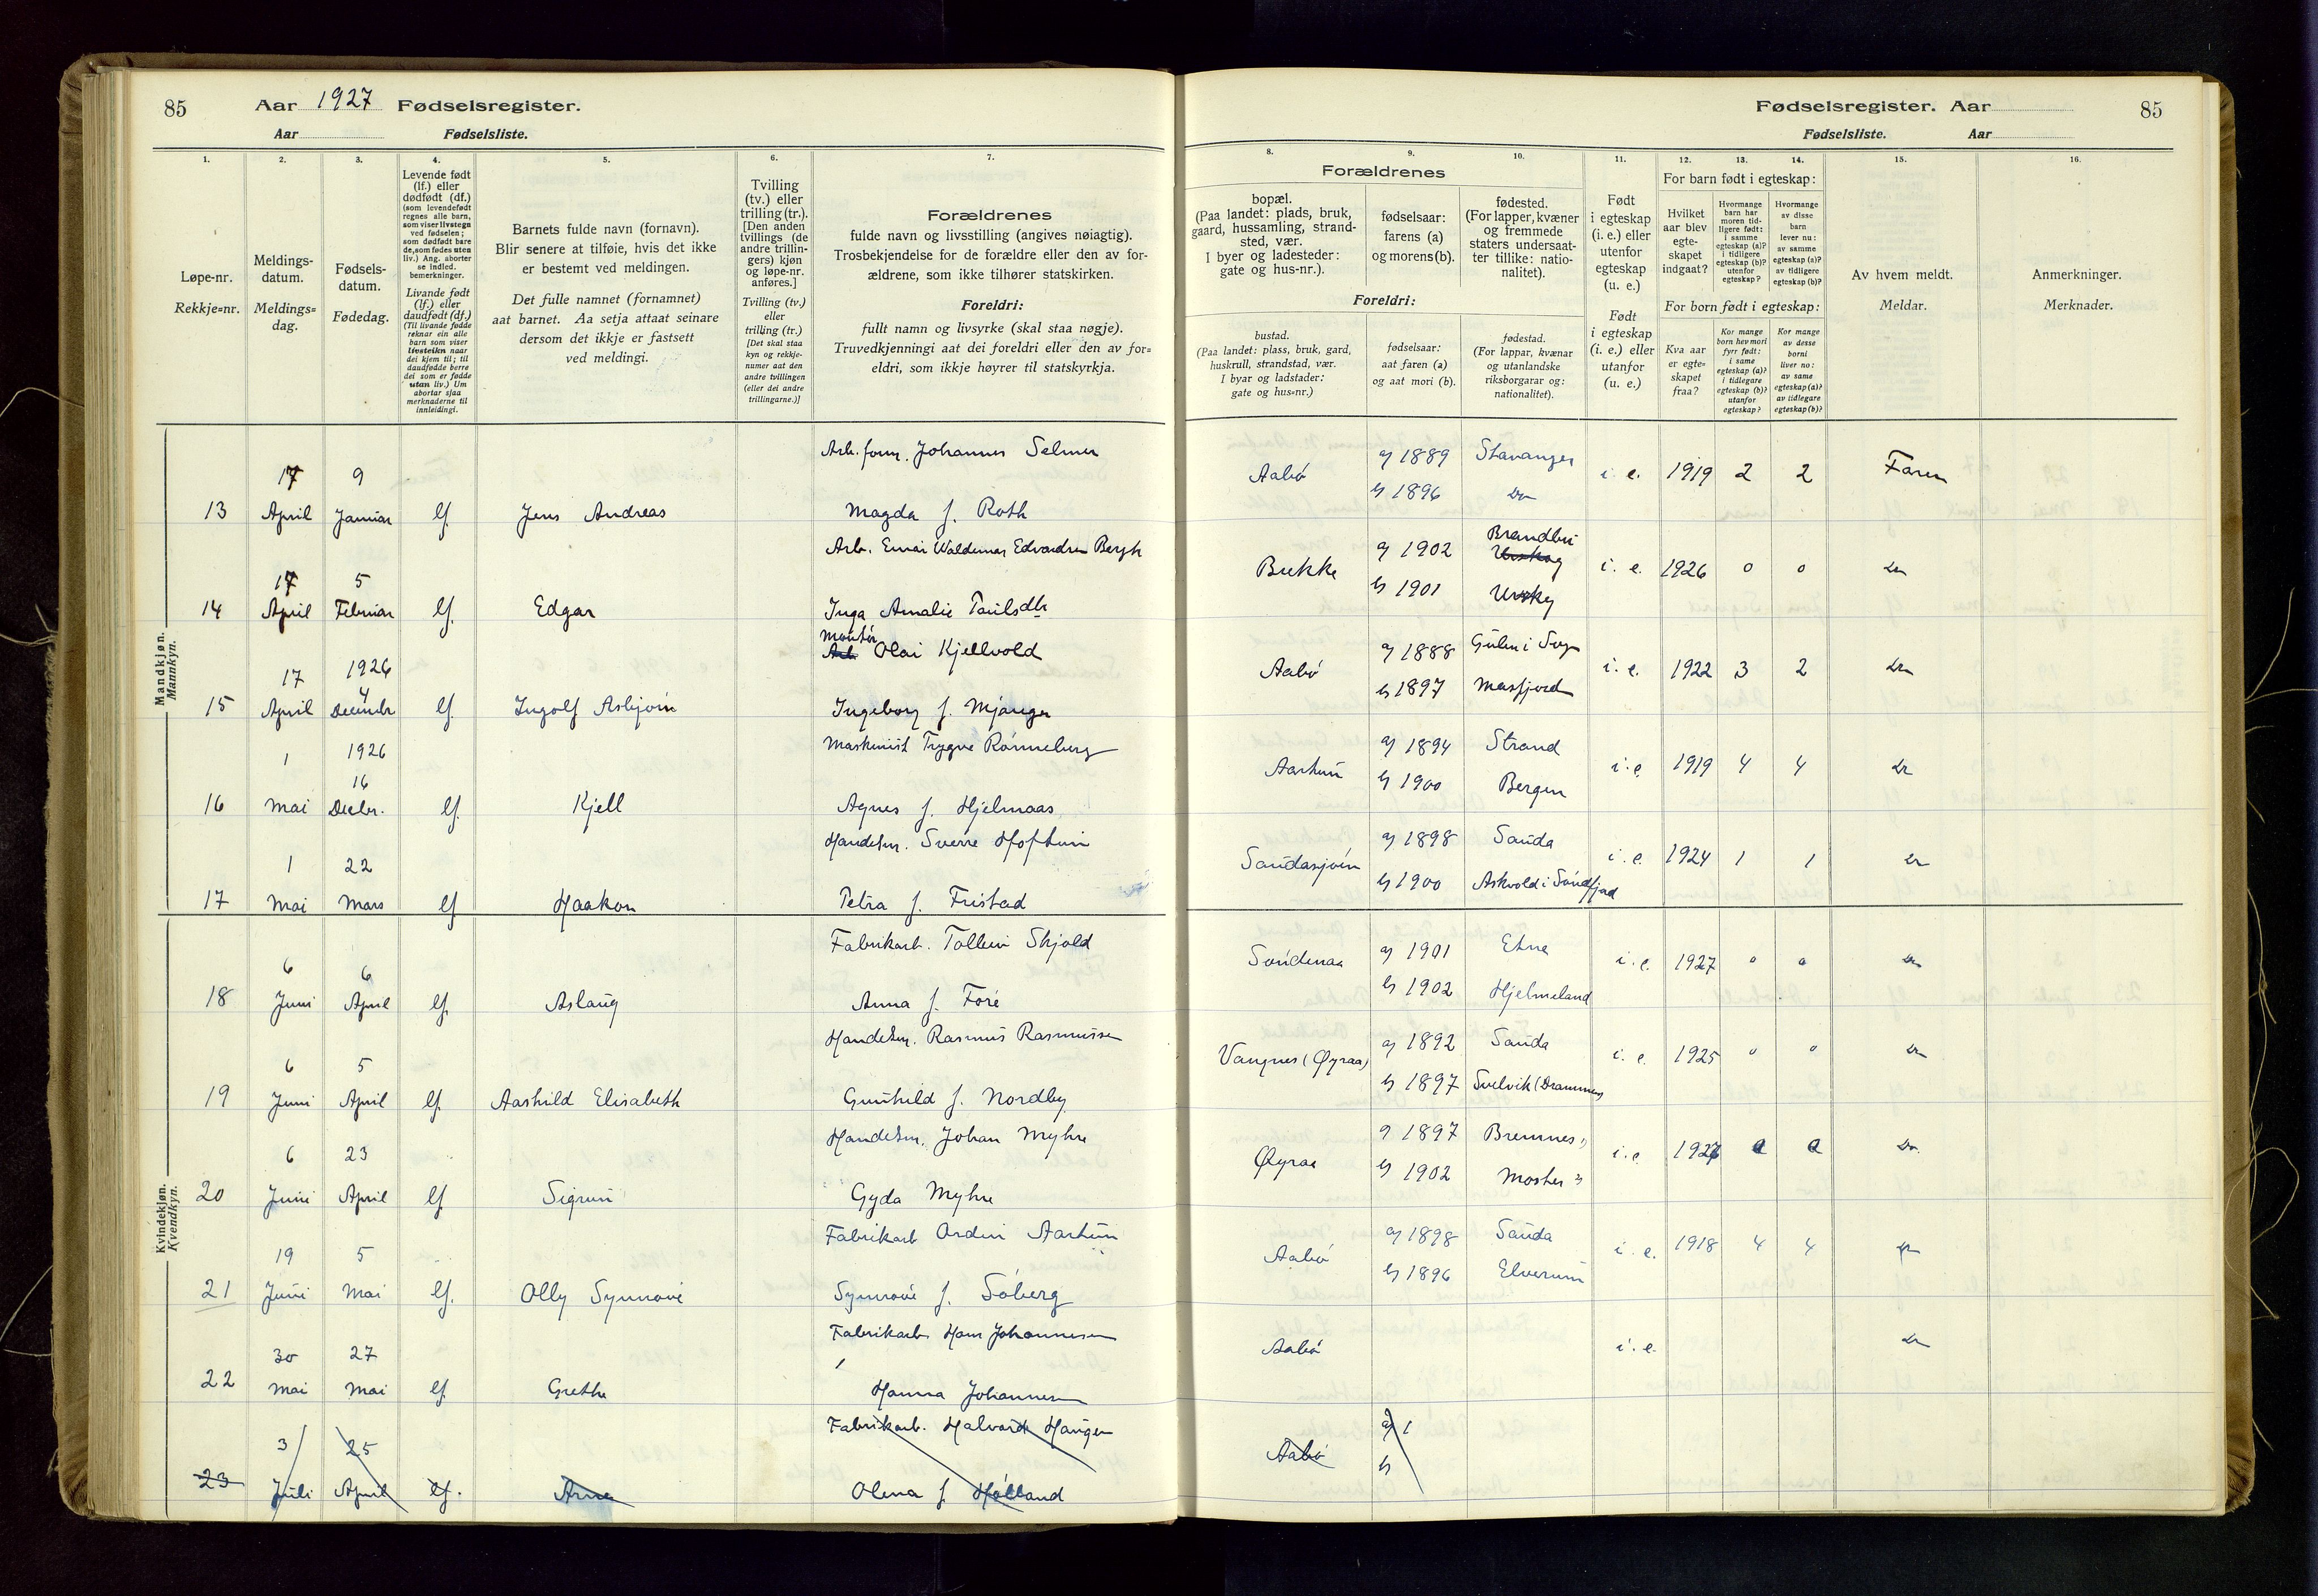 85 Aar 1927 Fødselsregister.
Aar Fødselsliste.
Fødselsregister. Aar 85
Fødselsliste. Aar
1. 2. 3. 4. 5. 6. 7. 8. 9. 10. 11. 12. 13. 14. 15. 16.
Løpe-nr.
Rekkje=nr.
Meldings-
datum.
Meldings=
dag.
Fødsels-
datum.
Fødedag.
Levende født
(lf.) eller
dødfødt (df.)
(som levendefødt
regnes alle barn,
som viser livstegn
ved fødselen;
som dødfødt bare
de, som fødes uten
liv.) Ang. aborter
se indled.
bemerkninger.
Livande født
(lf.) eller
daudfødt (df.)
(Til livande fødde
reknar ein alle
barn som viser
livsteikn naar
dei kjem til; til
daudfødde berre
dei som er fødde
utan liv.) Um
abortar sjaa
merknaderne til
innleidingi.
Barnets fulde navn (fornavn).
Blir senere at tilføie, hvis det ikke
er bestemt ved meldingen.
Det fulle namnet (fornamnet)
aat barnet. Aa setja attaat seinare
dersom det ikkje er fastsett
ved meldingi.
Tvilling
(tv.) eller
trilling (tr.).
[Den anden
tvillings (de
andre trillin-
gers) kjøn
og løpe-nr.
anføres.]
Tvilling (tv.)
eller
trilling (tr.)
[Det skal staa
kyn og rekkje-
numer aat den
andre tvillingen
(eller dei andre
trillingarne.)]
Forældrenes
fulde navn og livsstilling (angives nøiagtig).
Trosbekjendelse for de forældre eller den av for-
ældrene, som ikke tilhører statskirken.
Foreldri:
fullt namn og livsyrke (skal staa nøgje).
Truvedkjenningi aat dei foreldri eller den av for=
eldri, som ikkje høyrer til statskyrkja.
Forældrenes
bopæl.
(Paa landet: plads, bruk,
gaard, hussamling, strand-
sted, vær.
I byer og ladesteder:
gate og hus-nr.).
fødselsaar:
farens (a)
og morens (b).
fødested.
(For lapper, kvæner
og fremmede
staters undersaat-
ter tillike: natio-
nalitet).
Foreldri:
bustad.
(Paa landet: plass, bruk, gard,
huskrull, strandstad, vær.
I byar og ladstader:
gate og hus=nr.)
fødselsaar:
aat faren (a)
og aat mori (b).
fødestad.
(For lappar, kvænar
og utanlandske
riksborgarar og:
nationalitet).
Født
i egteskap
(i. e.) eller
utenfor
egteskap
(u. e.)
Født
i egteskap
(i. e.) eller
utanfor
(u. e.)
For barn født i egteskap:
Hvilket
aar blev
egte-
skapet
indgaat?
Hvormange
barn har
moren tid-
ligere født:
i samme
egteskap (a)?
i tidligere
egteskap (b)?
utenfor
egteskap?
Hvormange
av disse
barn
lever nu:
av samme
egteskap (a)?
av tidligere
egteskap (b)?
For born født i egteskap:
Kva aar
er egte=
skapet
fraa?
Kor mange
born hev mori
fyrr født:
i same
egteskap (a)?
i tidlegare
egteskap (b)?
utanfor
egteskap?
Kor mange
av desse
borni
liver no:
av same
egteskap (a)?
av tidlegare
egteskap (b)?
Av hvem meldt.
Meldar.
Anmerkninger.
Merknader.
Mandkjøn.
Mannkyn.
17 9 Arb. form. Johannes Selmer Aabø a) 1889 Stavanger i. e. 1919 2 2 Faren
13 April Januar lf. Jens Andreas Magda f. Roth b) 1896 Do
17 5 Arb. Einar Waldemar Edvardsen Bergh Brekke a) 1902 Brandbu Urskog i. e. 1926 0 0 Do
14 April Februar lf. Edgar Inga Amalie Paulsdtr b) 1901 Urskog
Montør
17 1926 4 Arb. Olai Kjellvold Aabø a) 1888 Gulen i Sogn i. e. 1922 3 2 Do
15 April Decembr lf. Ingolf Asbjørn Ingeborg f. Mjanger b) 1897 Masfjord
1 1926 16 Maskinist Trygve Rønneberg Aarthun a) 1894 Strand i. e. 1919 4 4 Do
16 Mai Decbr. lf. Kjell Agnes f. Hjelmaas b) 1900 Bergen
1 22 Handelsm. Sverre Hofthun Saudasjøen a) 1898 Sauda i. e. 1924 1 1 Do
17 Mai Mars lf Haakon Petra f. Fristad b) 1900 Askvold i Søndfjord
Kvindekjøn.
Kvendkyn.
6 6 Fabrikarb. Tolleiv Skjold Søndenaa a) 1901 Etne i. e. 1927 0 0 Do
18 Juni April lf. Aslaug Anna f. Fore b) 1902 Hjelmeland
6 5 Handelsm. Rasmus Rasmussen Vangnes (Øyraa) a) 1892 Sauda i. e. 1925 0 0 Do
19 Juni April lf. Aashild Elisabeth Gunhild f. Nordby b) 1897 Svelvik (Drammen)
6 23 Handelsm. Johan Myhre Øyraa a) 1897 Bremnes i. e. 1926 Do
20 Juni April lf Sigrun Gyda Myhre b) 1902 Moster
19 5 Fabrikarb Ardin Aarthun Aabø a) 1898 Sauda i. e. 1918 4 4
21 Juni Mai lf. Olly Synnøve Synnøve f. Søberg b) 1896 Elverum
30 27 Fabrikarb Hans Johannesen Aabø i. e. Do
22 Mai Mai lf. Grethe Hanna Johannesen
3 25 Fabrikarb. Halvard Haugen Aabø a) 1
23 Juli April lf. Arne Olena f. Hølland b